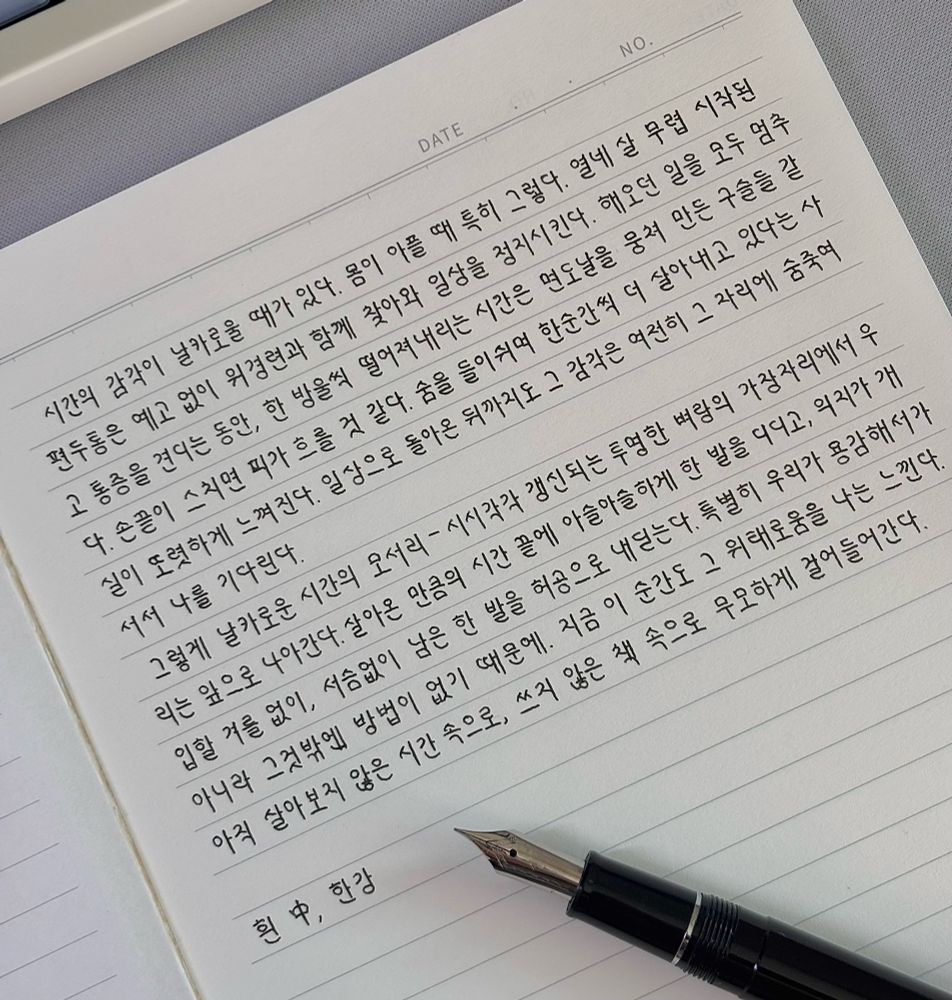 NO.
DATE
시간의 감각이 날카로울 때가 있다. 몸이 아플 때 특히 그렇다. 열네 살 무렵 시작된
편두통은 예고 없이 위경련과 함께 찾아와 일상을 정지시킨다. 해오던 일을 모두 멈추
고 통증을 견디는 동안, 한 방울씩 떨어져내리는 시간은 면도날을 뭉쳐 만든 구슬들 같
다. 손끝이 스치면 피가 흐를 것 같다. 숨을 들이쉬며 한순간씩 더 살아내고 있다는 사
실이 또렷하게 느껴진다. 일상으로 돌아온 뒤까지도 그 감각은 여전히 그 자리에 숨죽여
서서 나를 기다린다.
그렇게 날카로운 시간의 모서리 - 시시각각 갱신되는 투명한 벼랑의 가장자리에서 우
리는 앞으로 나아간다. 살아온 만큼의 시간 끝에 아슬아슬하게 한 발을 디디고, 의지가 개
입할 겨를 없이, 서슴없이 남은 한 발을 허공으로 내딛는다. 특별히 우리가 용감해서가
아니라 그것밖엔 방법이 없기 때문에. 지금 이 순간도 그 위태로움을 나는 느낀다.
아직 살아보지 않은 시간 속으로, 쓰지 않은 책 속으로 무모하게 걸어들어간다.
흰 中, 한강